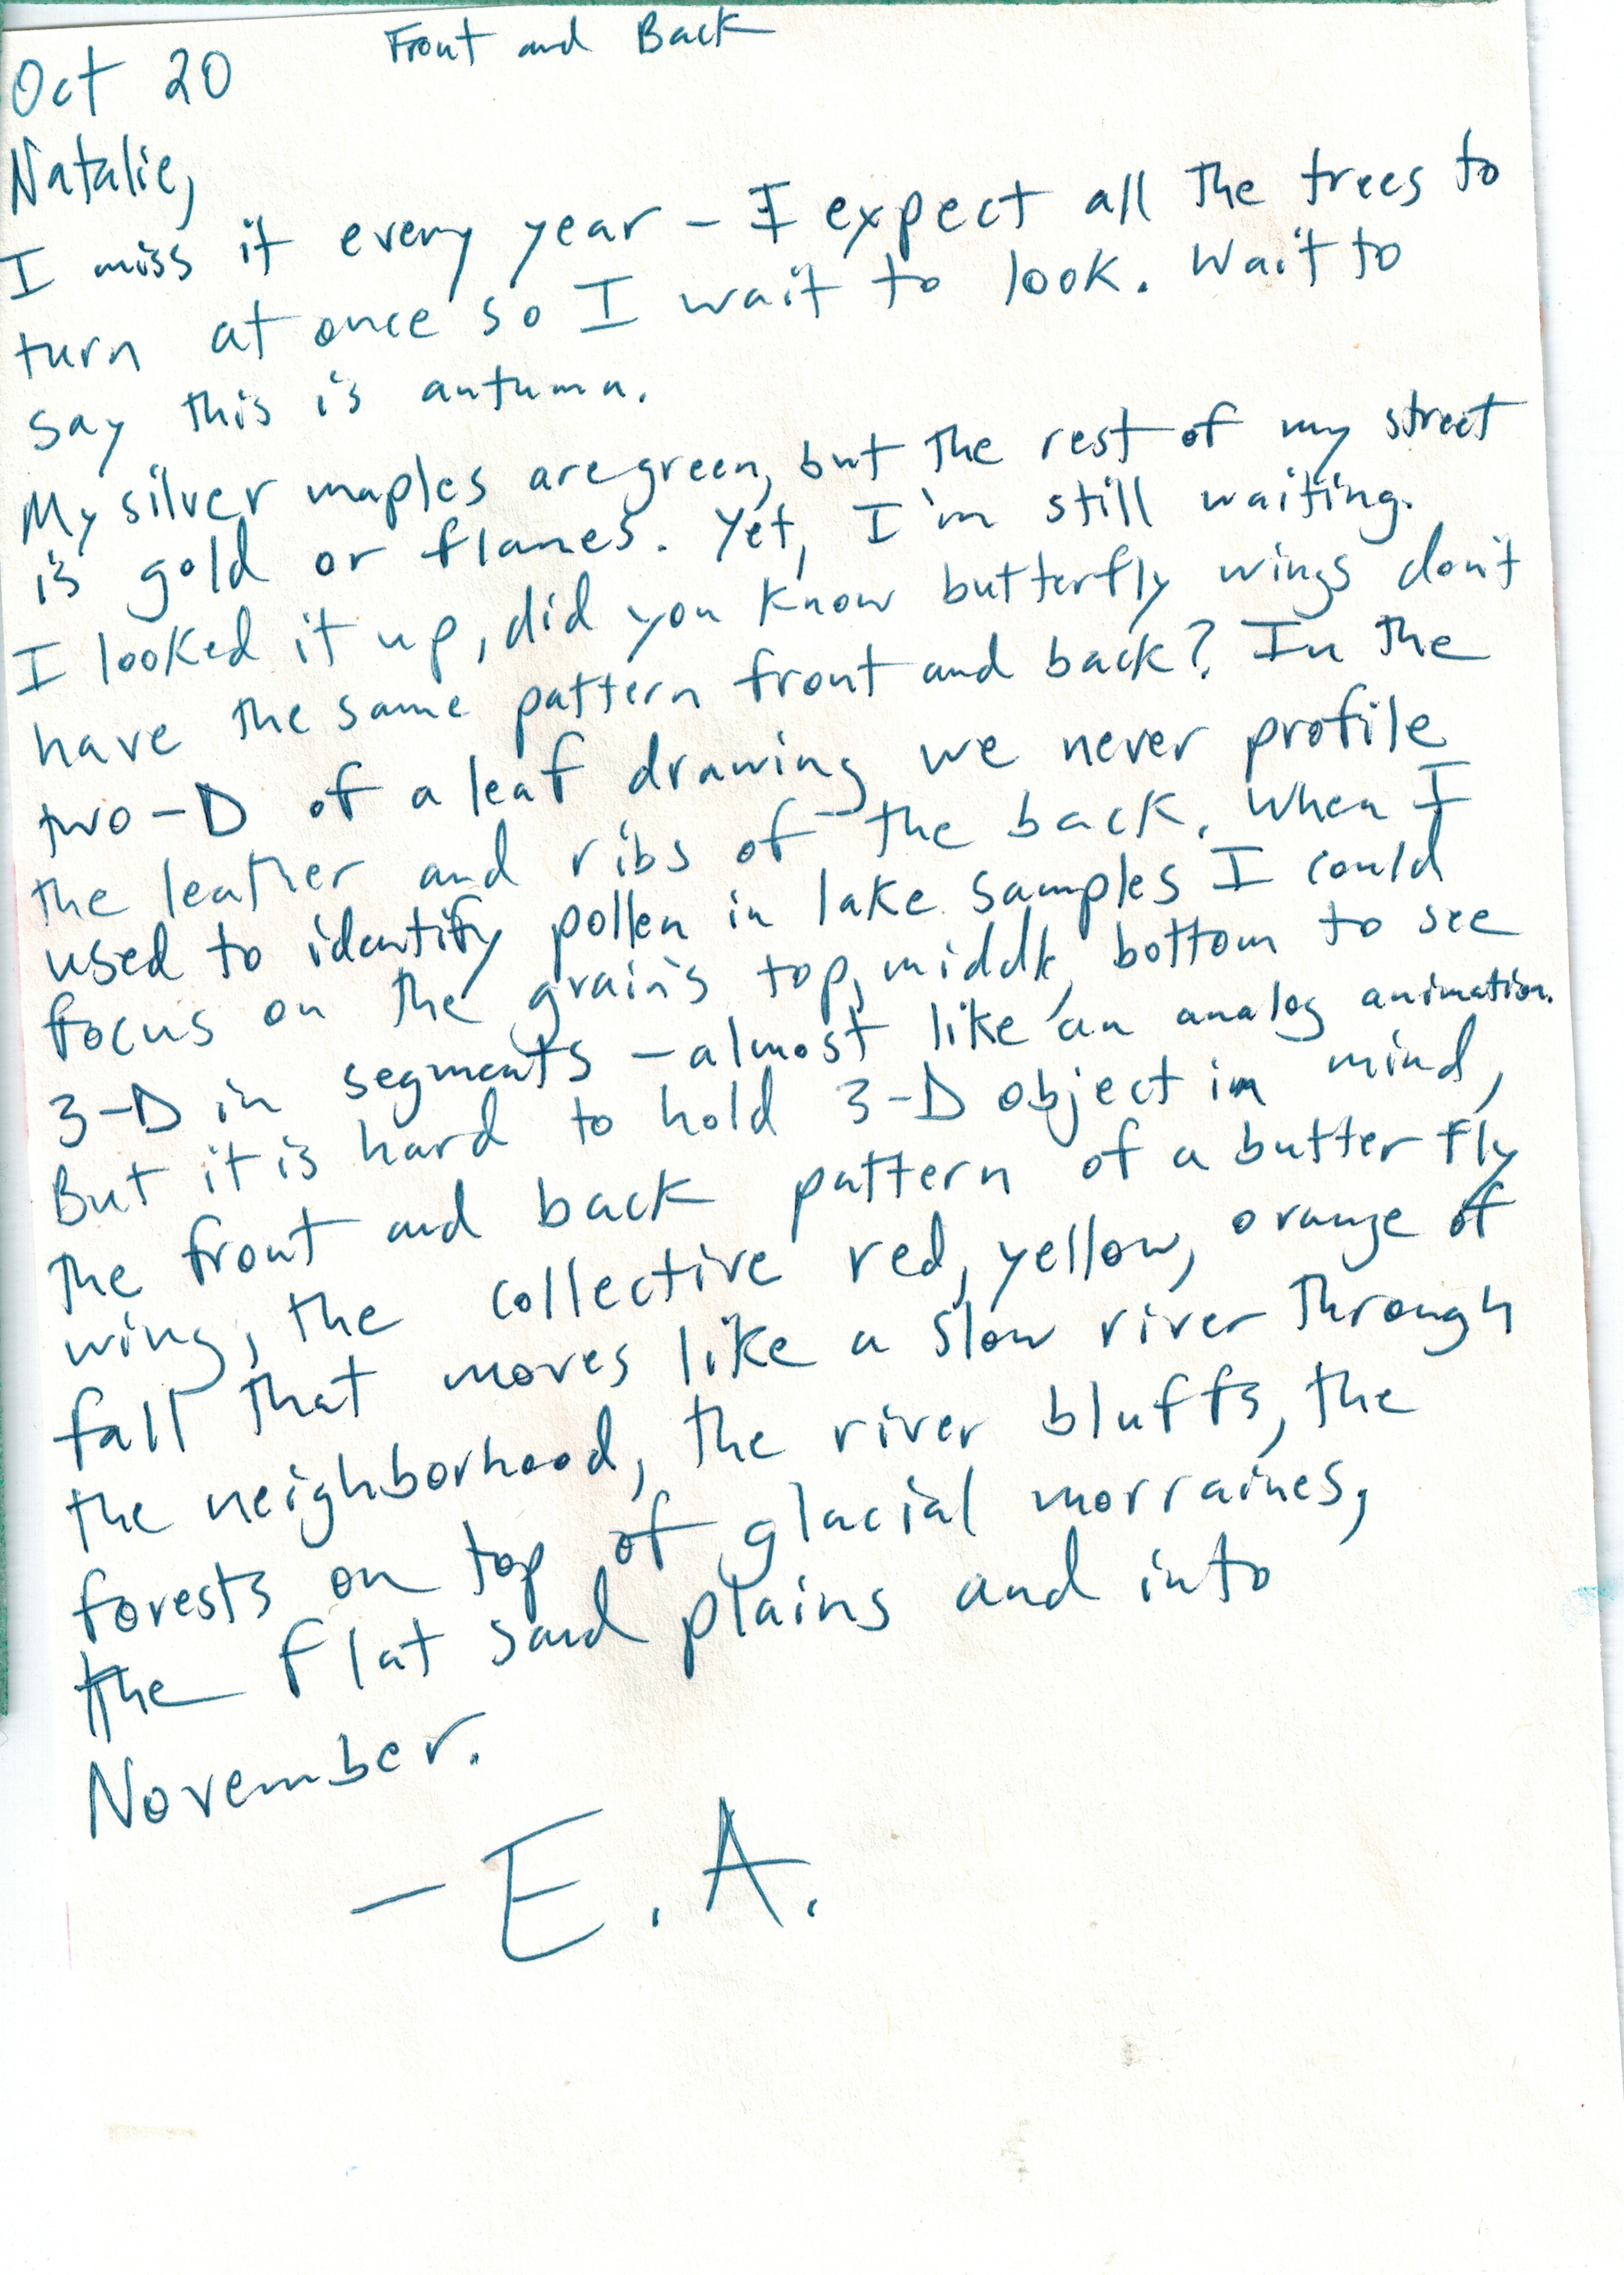 Front and Back
Oct 20
Natalie,
I miss it every year – I expect all the trees to
turn at once so I wait to look. Wait to
say this is autumn.
My silver maples are green, but the rest of my street
is gold or flames. Yet, I'm still waiting.
I looked it up, did you know butterfly wings don't
have the same pattern front and back? In the
two-D of a leaf drawing we never profile
the leather and ribs of the back. When I
used to identify pollen in lake samples I could
focus on the grain's top, middle, bottom to see
3-D in segments – almost like an analog animation.
But it is hard to hold 3-D object in mind,
the front and back pattern of a butterfly
wing, the collective red, yellow, orange of
fall that moves like a slow river through
the neighborhood, the river bluffs, the
forests on top of glacial morraines,
the flat sand plains and into
November.
– E.A.